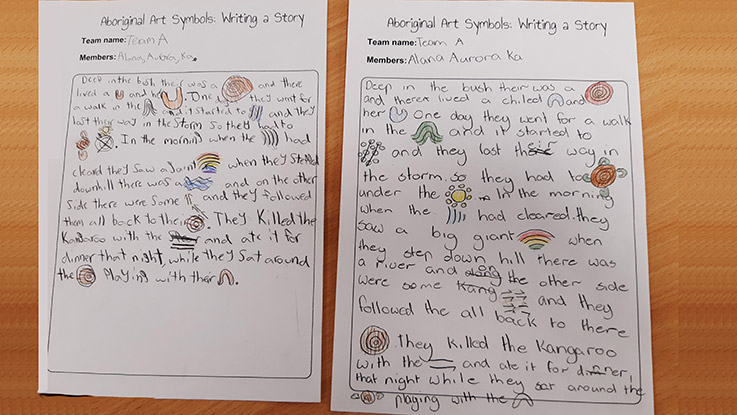 Aboriginal Art Symbols: Writing a Story
Team name: Team A
Members: Alana, Aurora, Ka
Deep in the bush their was a and there
lived a and her . One they went for
a walk in the and it started to and they
lost their way in the storm so they had to
. In the morning when the had
cleared they saw a giant when they
downhill there was a and on the other
side there were some and they followed
them all back to their . They Killed the
Kangaroo with the and ate it for
dinner that night, while they sat around
the Playing with their .
Aboriginal Art Symbols: Writing a Story
Team name: Team A
Members: Alana Aurora Ka
Deep in the bush their was a
and there lived a chiled and
her One day they went for a walk
in the and it started to
and they lost their way in
the storm. so they had to
under the . In the morning
when the had cleared. they
saw a big giant when
they step down hill there was
a river and along on the other side
were some Kang and they
followed the all back to there
. they Killed the Kangaroo
with the and ate it for dinner,
that night while they sat around the
playing with the